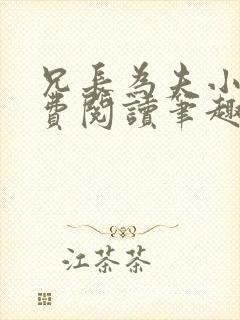 兄長為夫小
費閱讀筆趣
江茶茶